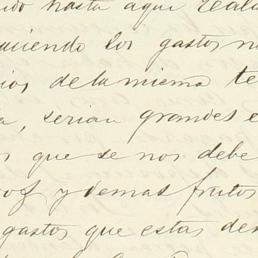 do hasta aqui reali
guiendo los gastos n
ios de la misma te
a, serian grandes e
s que se nos debe
of y demas frutos
gastos que estas de